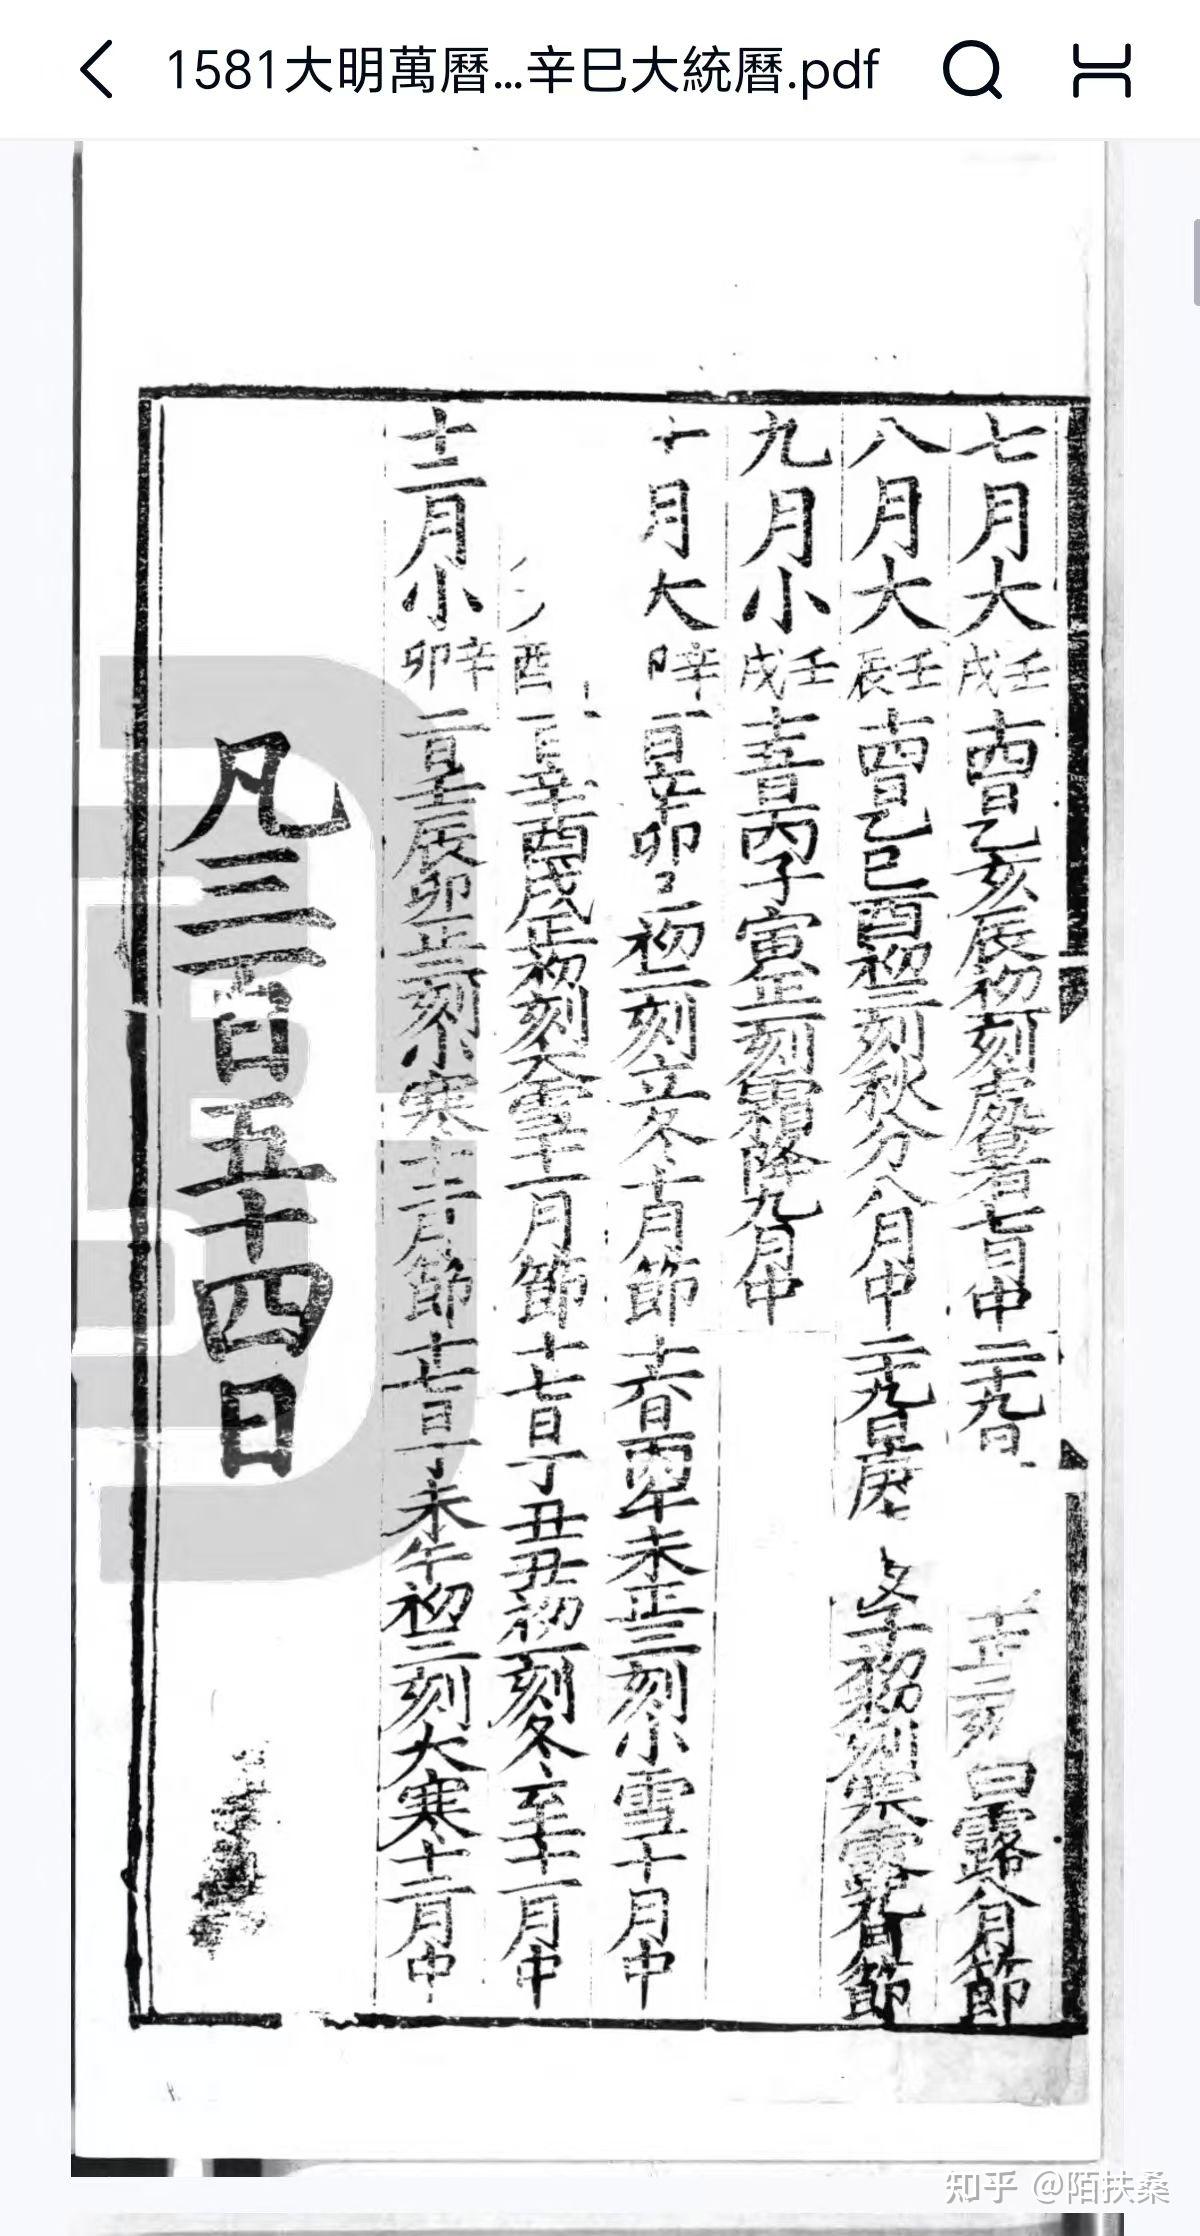 1581大明萬曆...辛巳大統曆.pdf
七月大 壬戌 十四日乙亥辰初刻處暑七月中 二十九日 正二刻白露八月節
八月大 壬辰 十四日乙巳酉初三刻秋分八月中 二十九日庚 子初刻寒露九月節
九月小 壬戌 十五日丙子寅正一刻霜降九月中
十月大 辛 一日辛卯 初二刻立冬十月節 十六日丙午未正三刻小雪十月中
酉 一日辛酉戌正初刻大雪十一月節 十七日丁丑丑初一刻冬至十一月中
十二月小 辛卯 二日壬辰卯正三刻小寒十二月節 十七日丁未午初二刻大寒十二月中
凡三百五十四日
知乎 @陌扶桑